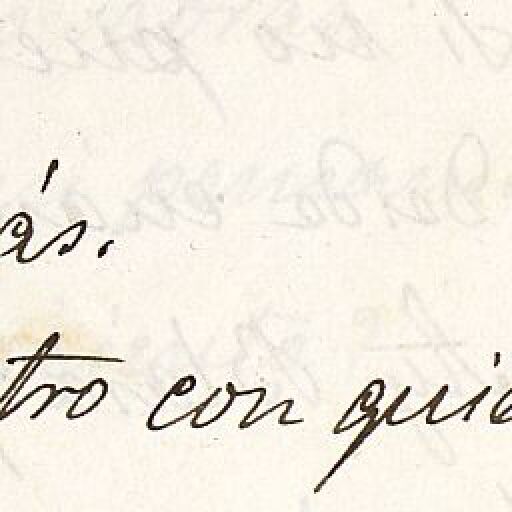 ás.
tro con quie